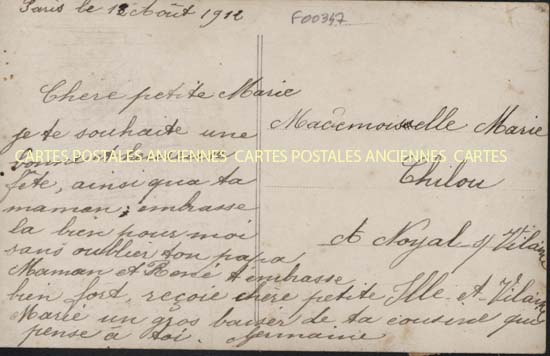 Paris le 12 Août 1912
F00347
Chère petite Marie
je te souhaite une
bonne et heureuse
CARTES POSTALES ANCIENNES CARTES POSTALES ANCIENNES CARTES
fête, ainsi qua ta
maman, embrasse
la bien pour moi
sans oublier ton papa
Maman et René t'embrasse
bien fort, reçoie chère petite
Marie un gros baiser de ta cousine qui
pense à toi. Germaine
Mademoiselle Marie
Chilou
A Noyal s/ Vilaine
Ille-et-Vilaine